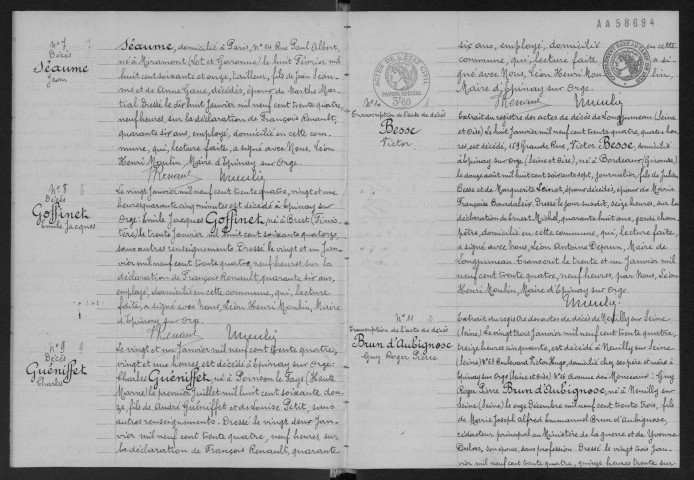 N° 7
Décès
Séaume
Jean
Séaume, domicilié à Paris, N° 24 Rue Paul Albert,
né à Miramont (Lot et Garonne) le huit Février mil
huit cent soixante et onze, tailleur, fils de Jean Séau-
me et de Anne Gane, décédés, époux de Marthe Mar-
tial. Dressé le dix huit Janvier mil neuf cent trente quatre
neuf heures, sur la déclaration de François Renault,
quarante six ans, employé, domicilié en cette com-
mune, qui, lecture faite, a signé avec Nous, Léon
Henri Moulin, Maire d'Epinay sur Orge.
Renault Moulin
N° 8
Décès
Goffinet
Emile Jacques
Le vingt Janvier mil neuf cent trente quatre, vingt et une
heures quarante cinq minutes est décédé à Epinay sur
Orge: Emile Jacques Goffinet, né à Brest (Finis-
tère) le trente Janvier mil huit cent soixante quatorze,
sans autres renseignements. Dressé le vingt et un Jan-
vier mil neuf cent trente quatre, neuf heures sur la
déclaration de François Renault, quarante six ans,
employé, domicilié en cette commune, qui, lecture
faite, a signé avec Nous, Léon Henri Moulin, Maire
d'Epinay sur Orge.
Renault Moulin
N° 9
Décès
Guéniffet
Charles
Le vingt et un Janvier mil neuf cent trente quatre,
vingt et une heures est décédé à Epinay sur Orge:
Charles Guéniffet, né à Poinson le Fays (Haute
Marne) le premier Juillet mil huit cent soixante dou-
ze, fils de André Guéniffet et de Louise Petit, sans
autres renseignements. Dressé le vingt deux Jan-
vier mil neuf cent trente quatre, neuf heures, sur
la déclaration de François Renault, quarante
AA58694
PAPIER SPÉCIAL
3f60
six ans, employé, domicilié en cette
commune, qui, lecture faite a si-
gné avec Nous, Léon Henri Moulin,
Maire d'Epinay sur Orge.
Renault Moulin
N° 10
Transcription de l'acte de décès
Besse
Victor
Extrait du registre des actes de décès de Longjumeau (Seine
et Oise) Le huit Janvier mil neuf cent trente quatre, quatre heu-
res, est décédé, 159 Grande Rue, Victor Besse, domicilié
à Epinay sur Orge (Seine et Oise), né à Bordeaux (Gironde)
le douze août mil huit cent soixante sept, journalier, fils de Julien
Besse et de Marguerite Lainot, époux décédés, époux de Marie
Françoise Baudalais. Dressé le jour susdit, seize heures, sur la
déclaration de Ernest Michel, quarante huit ans, garde cham-
pêtre, domicilié en cette commune, qui, lecture faite,
a signé avec Nous, Léon Antoine Deprun, Maire de
Longjumeau. Transcrit le trente et un Janvier mil
neuf cent trente quatre, neuf heures, par Nous, Léon
Henri Moulin, Maire d'Epinay sur Orge.
Moulin
N° 11
Transcription de l'acte de décès
Brun d'Aubignosc
Guy Roger Pierre
Extrait du registre des actes de décès de Neuilly sur Seine
(Seine) Le vingt trois Janvier mil neuf cent trente quatre,
treize heures cinquante, est décédé à Neuilly sur Seine
(Seine) N° 63 Boulevard Victor Hugo, domicilié chez ses père et mère à
Epinay sur Orge (Seine et Oise) N° 16 Avenue des Monceaux: Guy
Roger Pierre Brun d'Aubignosc, né à Neuilly sur
Seine (Seine) le onze Décembre mil neuf cent trente trois, fils
de Marie Joseph Alfred Emmanuel Brun d'Aubignosc,
rédacteur principal au Ministère de la guerre et de Yvonne
Dulos, son épouse, sans profession. Dressé le vingt trois Jan-
vier mil neuf cent trente quatre, quinze heures trente sur